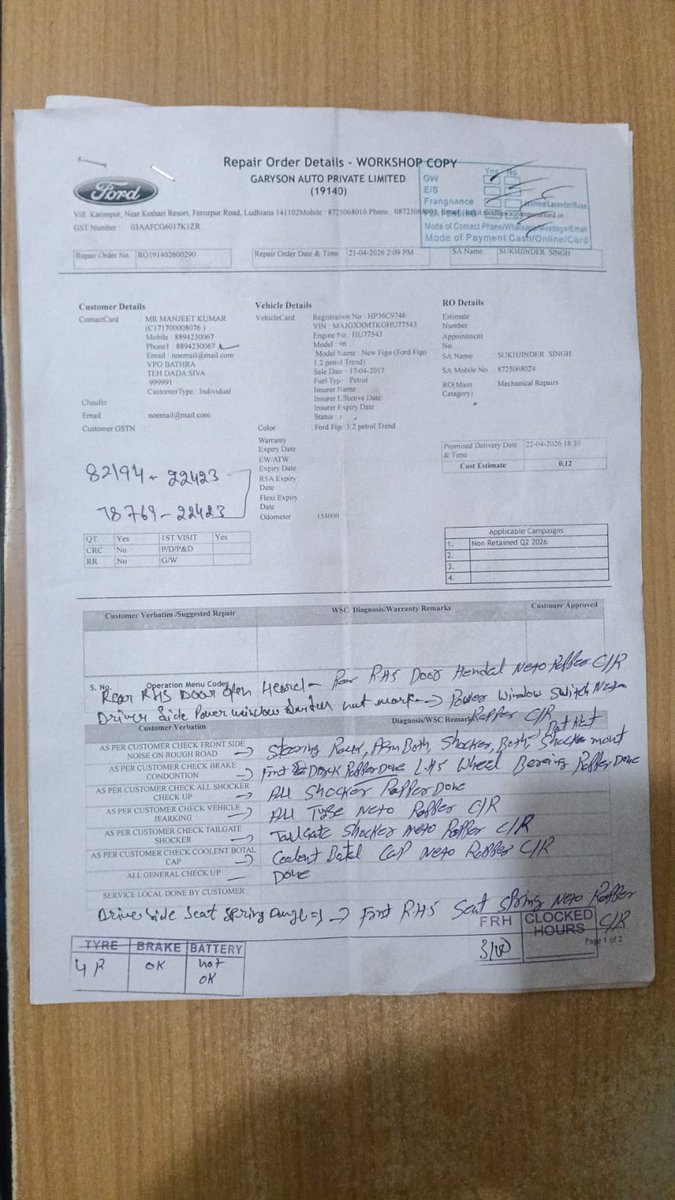 Repair Order Details - WORKSHOP COPY
Ford
GARYSON AUTO PRIVATE LIMITED
(19140)
Yes No
GW
E/S
Frangnance
Mode of Contact Phone/Whatsapp/Message/Email
Mode of Payment Cash/Online/Card
Vill. Karimpur, Near Kothari Resort, Ferozpur Road, Ludhiana 141102Mobile : 8725068016 Phone
GST Number 03AAFCG6017K1ZR
Repair Order No RO191402600290 Repair Order Date & Time 21-04-2026 2:09 PM SA Name SUKHJINDER SINGH
Customer Details
ContactCard : MR MANJEET KUMAR
(C171700008076 )
Mobile : 8894230067
Phone1 : 8894230067
Email : noemail@mail.com
VPO BATHRA
TEH DADA SIVA
999991
CustomerType : Individual
Chaufer
Email noemail@mail.com
Customer GSTN
82194-22423
78769-22423
Vehicle Details
VehicleCard : Registration No : HP36C9746
VIN : MAJGXXMTKGHU77543
Engine No : HU77543
Model : 96
Model Name : New Figo (Ford Figo
1.2 petrol Trend)
Sale Date : 17-04-2017
Fuel Typ: : Petrol
Insurer Name :
Insurer Effective Date:
Insurer Expiry Date :
Status :
Color : Ford Figo 1.2 petrol Trend
Warranty
Expiry Date
EW/ATW
Expiry Date
RSA Expiry
Date
Flexi Expiry
Date
Odometer 154000
RO Details
Estimate
Number
Appointment
No.
SA Name SUKHJINDER SINGH
SA Mobile No 8725068024
RO(Main Mechanical Repairs
Catagory)
Promised Delivery Date 22-04-2026 18:30
& Time
Cost Estimate 0.12
QT Yes 1ST VISIT Yes
CRC No P/D/P&D
RR No G/W
Applicable Campaigns
1. Non Retained Q2 2026
2.
3.
4.
Customer Verbatim /Suggested Repair WSC Diagnosis/Warranty Remarks Customer Approved
S. No. Operation Menu Codes
Rear RHS Door open - Rear RHS Door Hendal C/R
Driver Side Power window not → Power Window Switch C/R
Customer Verbatim Diagnosis/WSC Remark
AS PER CUSTOMER CHECK FRONT SIDE
NOISE ON ROUGH ROAD → Both, Shocker, Both, Shocker mount
AS PER CUSTOMER CHECK BRAKE
CONDONTION → LHS Wheel Bering Done
AS PER CUSTOMER CHECK ALL SHOCKER
CHECK UP → All Shocker Done
AS PER CUSTOMER CHECK VEHICLE
JEARKING → All C/R
AS PER CUSTOMER CHECK TAILGATE
SHOCKER → Tailgate Shocker C/R
AS PER CUSTOMER CHECK COOLENT BOTAL
CAP → Coolent Botal Cap C/R
ALL GENERAL CHECK UP → Done
SERVICE LOCAL DONE BY CUSTOMER
Driver Side Seat Spring → RHS Seat Spring C/R
FRH CLOCKED
HOURS
TYRE BRAKE BATTERY
OK not
OK
Page 1 of 2